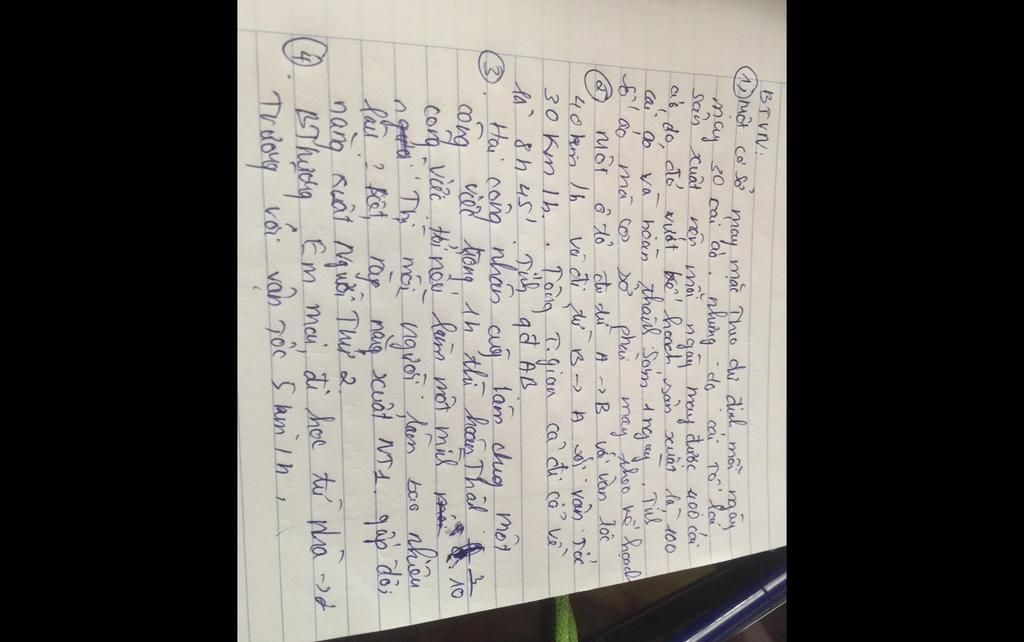 BTVN:
1, Một cơ sở may mặc Theo dự định mỗi ngày
may 30 cái áo. nhưng do cải tổ lại
sản xuất nên mỗi ngày may được 400 cái
áo do đó vượt kế hoạch sản xuất là 100
cái áo và hoàn thành sớm 1 ngày. Tính
Số áo mà cơ sở phải may theo kế hoạch
2 Một ô tô đi từ A → B với vận tốc
40 km /h và đi từ B → A với vận tốc
30 km /h. Tổng T.gian cả đi cả về
là 8h 45'. Tính qđ AB
3. Hai công nhân cùng làm chug một
công việc trong 1h thì hoàn Thàh 3/10
công việc. Hỏi nếu làm một mìh
Thì mỗi người làm bao nhiêu
lâu? Biết rằg năng xuất NT1. gấp đôi
năng xuất Người Thứ 2.
4. BThường Em mai, đi học từ nhà →
Trường với vận tốc 5 km/h,